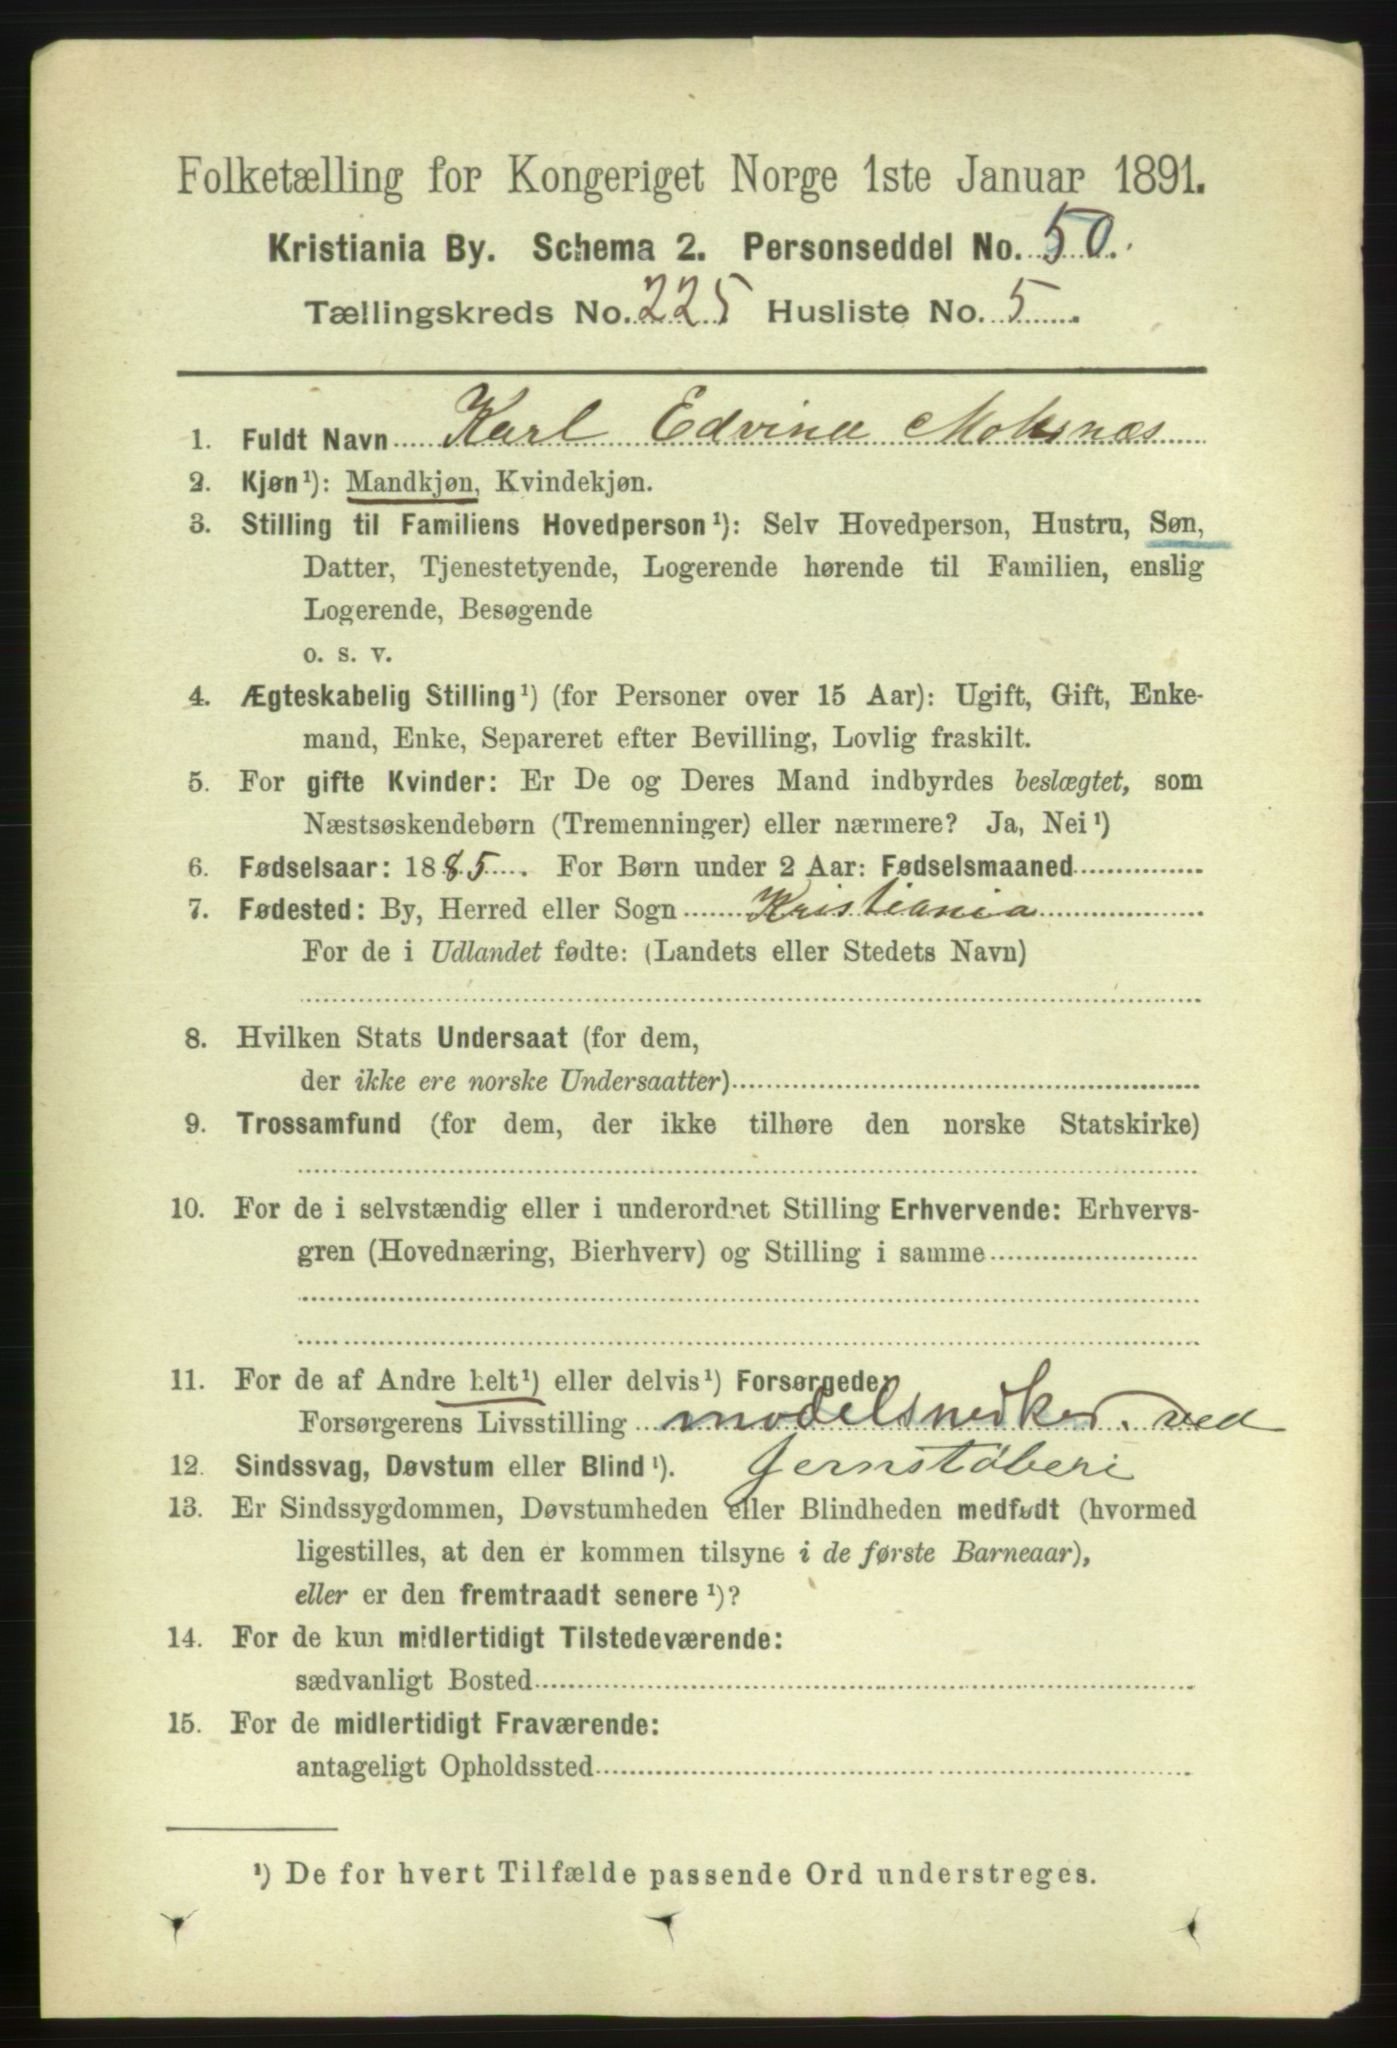 Folketælling for Kongeriget Norge 1ste Januar 1891.
Kristiania By. Schema 2. Personseddel No. 50.
Tællingskreds No. 225 Husliste No. 5
1. Fuldt Navn Karl Edvind Moksnæs
2. Kjøn¹): Mandkjøn, Kvindekjøn.
3. Stilling til Familiens Hovedperson¹): Selv Hovedperson, Hustru, Søn,
Datter, Tjenestetyende, Logerende hørende til Familien, enslig
Logerende, Besøgende
o. s. v.
4. Ægteskabelig Stilling¹) (for Personer over 15 Aar): Ugift, Gift, Enke-
mand, Enke, Separeret efter Bevilling, Lovlig fraskilt.
5. For gifte Kvinder: Er De og Deres Mand indbyrdes beslægtet, som
Næstsøskendebørn (Tremenninger) eller nærmere? Ja, Nei¹)
6. Fødselsaar: 1885. For Børn under 2 Aar: Fødselsmaaned
7. Fødested: By, Herred eller Sogn Kristiania
For de i Udlandet fødte: (Landets eller Stedets Navn)
8. Hvilken Stats Undersaat (for dem,
der ikke ere norske Undersaatter)
9. Trossamfund (for dem, der ikke tilhøre den norske Statskirke)
10. For de i selvstændig eller i underordnet Stilling Erhvervende: Erhvervs-
gren (Hovednæring, Bierhverv) og Stilling i samme
11. For de af Andre helt¹) eller delvis¹) Forsørgede,
Forsørgerens Livsstilling modelsnedker. ved
12. Sindssvag, Døvstum eller Blind¹). Jernstøberi
13. Er Sindssygdommen, Døvstumheden eller Blindheden medfødt (hvormed
ligestilles, at den er kommen tilsyne i de første Barneaar),
eller er den fremtraadt senere¹)?
14. For de kun midlertidigt Tilstedeværende:
sædvanligt Bosted
15. For de midlertidigt Fraværende:
antageligt Opholdssted
¹) De for hvert Tilfælde passende Ord understreges.